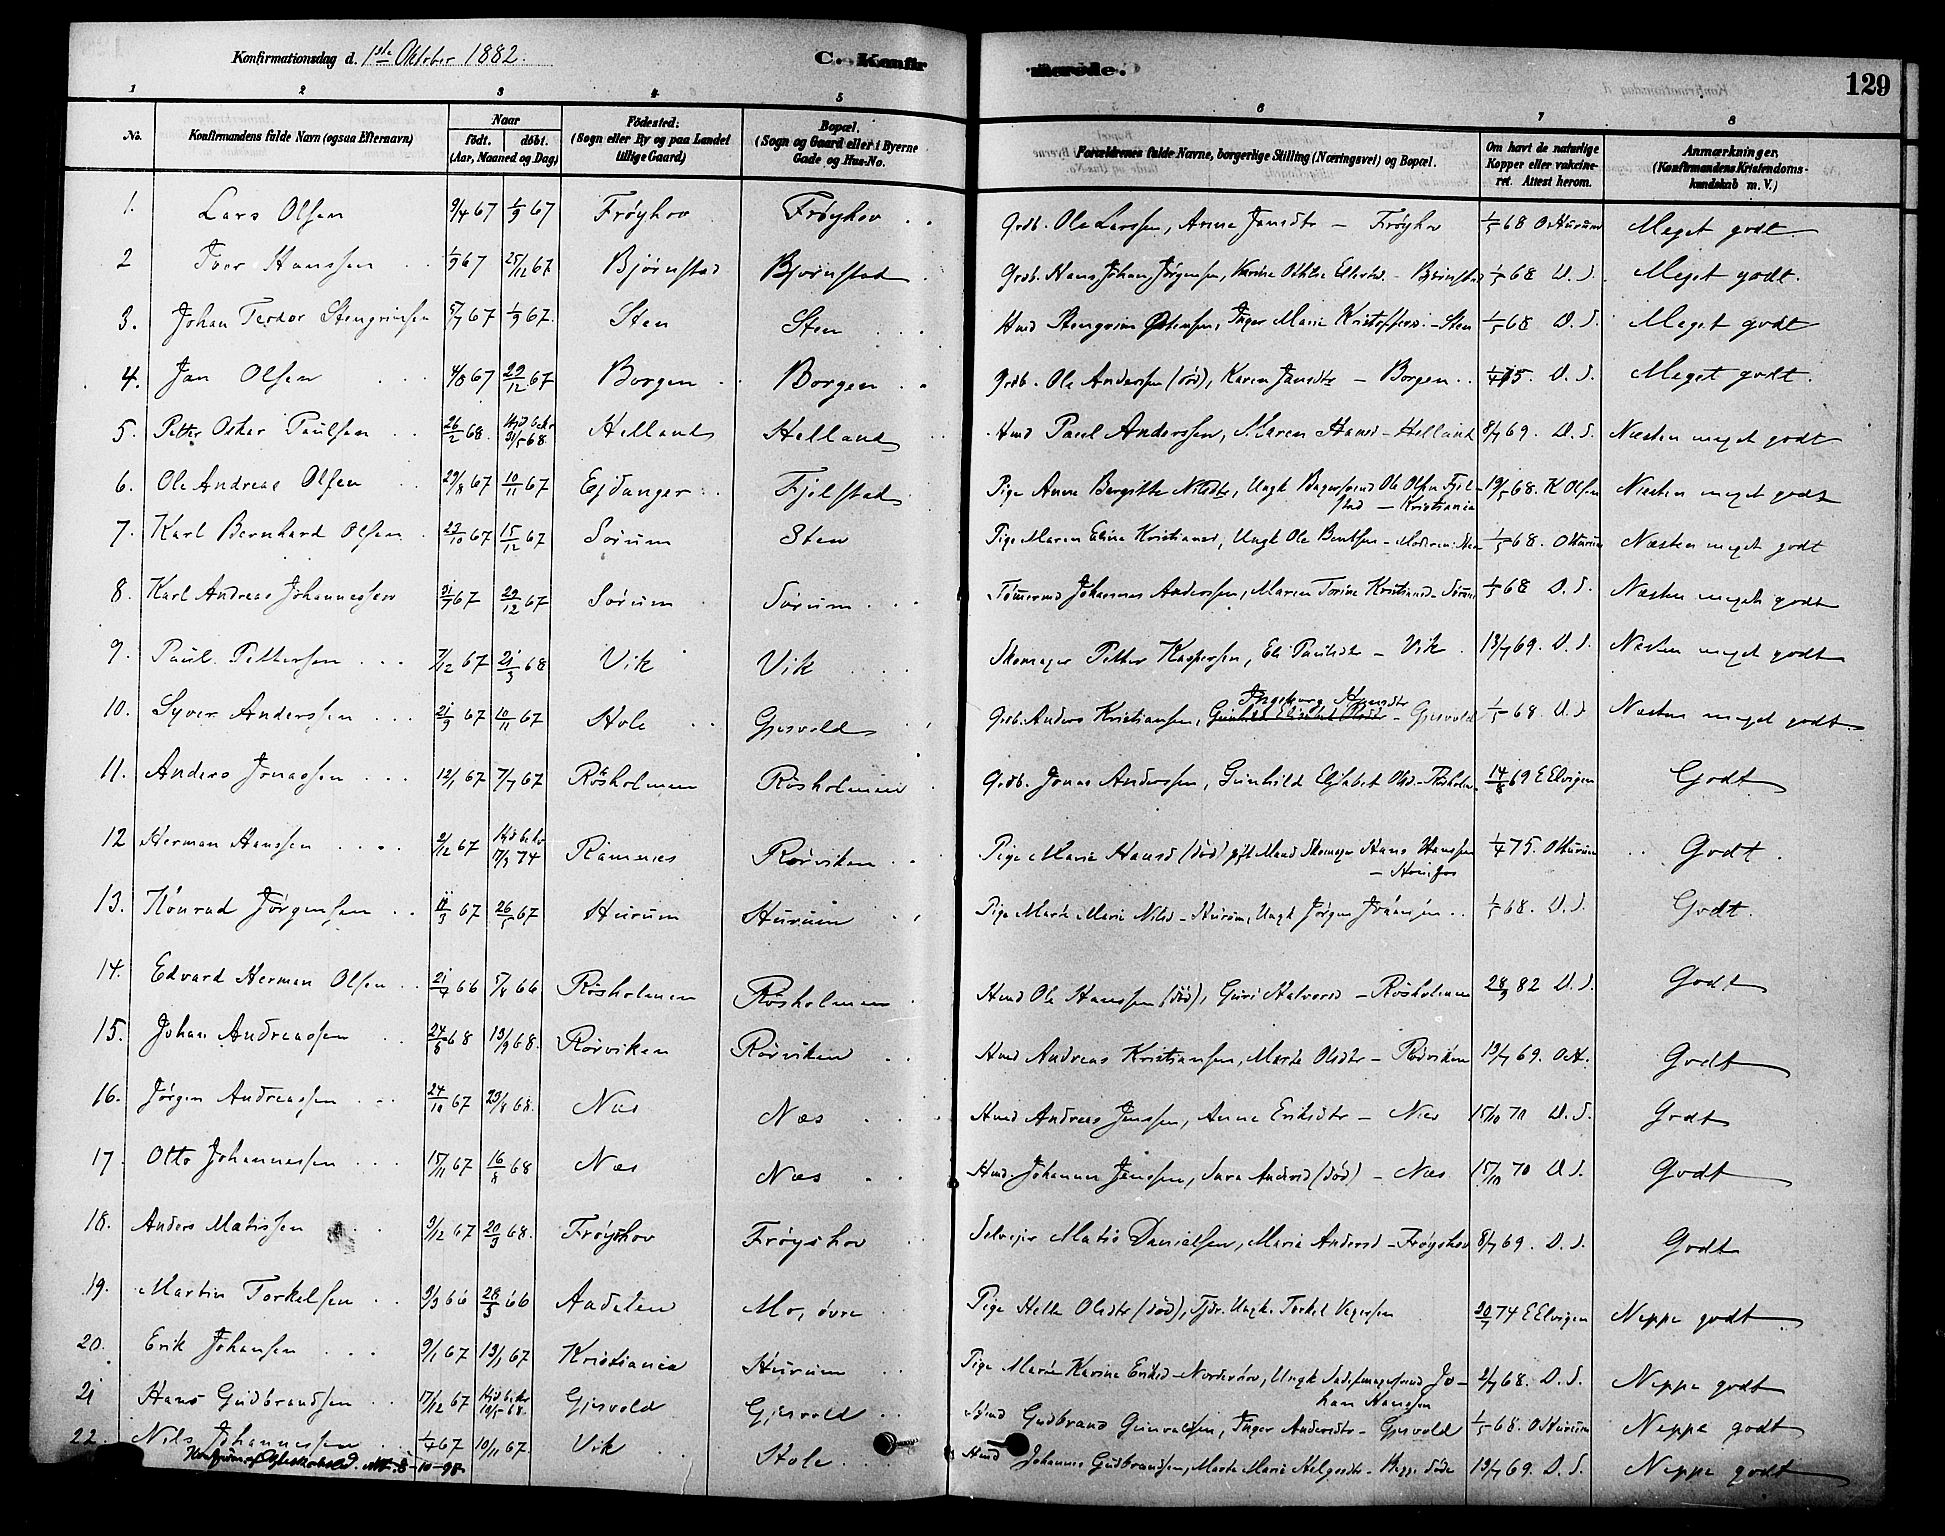 Konfirmationsdag d. 1ste Oktober 1882. C. Konfirmerede. 129
1 2 3 4 5 6 7 8
No. Konfirmandens fulde Navn (ogsaa Efternavn) Naar født. døbt. (Aar, Maaned og Dag) Fødested: (Sogn eller By og paa Landet tillige Gaard) Bopæl. (Sogn og Gaard eller i Byerne Gade og Hus-No. Forældrenes fulde Navne, borgerlige Stilling (Næringsvei) og Bopæl. Om havt de naturlige Kopper eller vaksineret. Attest herom. Anmærkninger. (Konfirmandens Kristendomskundskab m. V.)
1. Lars Olsen 9/4 67 1/9 67 Frøyhov Frøyhov Grdb. Ole Larssen, Anne Jansdtr - Frøyhov 1/5 68 O Hurum Meget godt.
2 Iver Hanssen 1/9 67 25/12 67 Bjørnstad Bjørnstad Grdb. Hans Johan Jørgensen, Karine - Bjørnstad 1/5 68 D. S. Meget godt.
3. Johan Teodor Stengrimsen 5/7 67 1/9 67. Sten Sten Hmd Stengrim Østensen, Inger Marie Kristoffersd. - Sten 1/5 68 D. S. Meget godt
4. Jan Olsen 4/8 67 29/12 67 Borgen Borgen Grdb. Ole Anderssen (død), Karen Jansdtr - Borgen 1/4 75. D. S. Meget godt.
5. Petter Oskar Paulsen 26/2 68. Hjd bekr 31/5 68 Helland Helland Hmd Paul Anderssen, Maren Hansd - Helland 8/7 69. D. S. Næsten meget godt
6. Ole Andreas Olsen 29/8 67 10/11 67 Ejdanger Fjelstad Pige Anne Bergitte Nilsdtr, Ungk Bagersvend Ole Olsen Fjelstad - Kristiania 19/5 68. K Olsen Næsten meget godt
7. Karl Bernhard Olsen 23/10 67 15/12 67 Sørum Sten Pige Maren Eline Kristiansd, Ungk Ole Bentsen - Moderen: Sten 1/5 68. O Hurum Næsten meget godt
8. Karl Andreas Johannessen 31/7 67 29/12 67 Sørum Sørum Tømmermd Johannes Anderssen, Maren Torine Kristiansd - Sørum 1/5 68 D. S. Næsten meget godt
9. Paul Pettersen 7/12 67 21/3 68 Vik Vik Skomager Petter Kaspersen, Eli Paulsdtr - Vik 13/7 69. D. S. Næsten meget godt
10. Syver Anderssen 21/9 67 10/11 67 Hole Gjesvold Grdb. Anders Kristiansen, Ingeborg Hansdtr - Gjesvold 1/5 68. D. S Næsten meget godt
11. Anders Jonassen 12/1 67 7/7 67 Røsholmen Røsholmen Grdb. Jonas Anderssen, Gunhild Elisabet Olsd - Røsholm. 14/8 69 E Elvigen Godt
12 Herman Hanssen 2/12 67 Hjd bekr 17/3 74 Ramnes Rørviken Pige Maria Hansd (død) gift Mand Skomager Hans Hanssen - Hønefos 1/4 75. O Hurum Godt.
13. Konrad Jørgensen 11/3 67 26/5 67 Hurum Hurum Pige Marte Marie Nilsd - Hurum, Ungk Jørgen Johansen 1/5 68. D. S. Godt.
14. Edvard Herman Olsen 21/4 66 5/8 66 Røsholmen Røsholmen Hmd Ole Hanssen (død), Guri Halvorsd - Røsholmen 28/9 82 D. S. Godt
15. Johan Andreassen 24/5 68 13/9 68. Rørviken Rørviken Hmd Andreas Kristiansen, Marte Olsdtr - Rørviken 13/7 69. O. H. Godt
16. Jørgen Andreassen 24/10 67 23/8 68. Næs Næs Hmd Andreas Jenssen, Anne Eriksdtr - Næs 15/10 70 D. S. Godt
17. Otto Johannessen 15/11 67 16/8 68 Næs Næs Hmd. Johannes Jenssen, Sara Andersd (død) - Næs 15/10 70 D. S. Godt
18. Anders Matissen 9/12 67 20/3 68. Frøyshov Frøyshov Selvejer Matis Danielsen, Maria Andersd - Frøyshov 8/7 69. D. S. Godt
19. Martin Torkelsen 9/3 66 28/3 66 Aadalen Mo, øvre Pige Helle Olsdtr (død), Tjdr. Ungk. Torkel 20/7 74 E Elvigen Neppe godt
20. Erik Johansen 9/1 67 13/1 67 Kristiania Hurum Pige Marie Karine Eriksd Norderhov, Ungk Johan Hansen 2/7 68. D. S. Neppe godt
21 Hans Gudbrandsen 17/12 67 Hjd bekr 10/5 68. Gjesvold Gjesvold Hmd Gudbrand Gunvaldsen, Inger Andersdtr - Gjesvold 1/5 68. O Hurum Neppe godt
22. Nils Johannessen 1/4 67 10/11 67. Vik Hole Hmd Johannes Gudbrandsen, Marte Marie Helgesdtr - Begge døde 13/7 69. D. S. Neppe godt
8-10-98